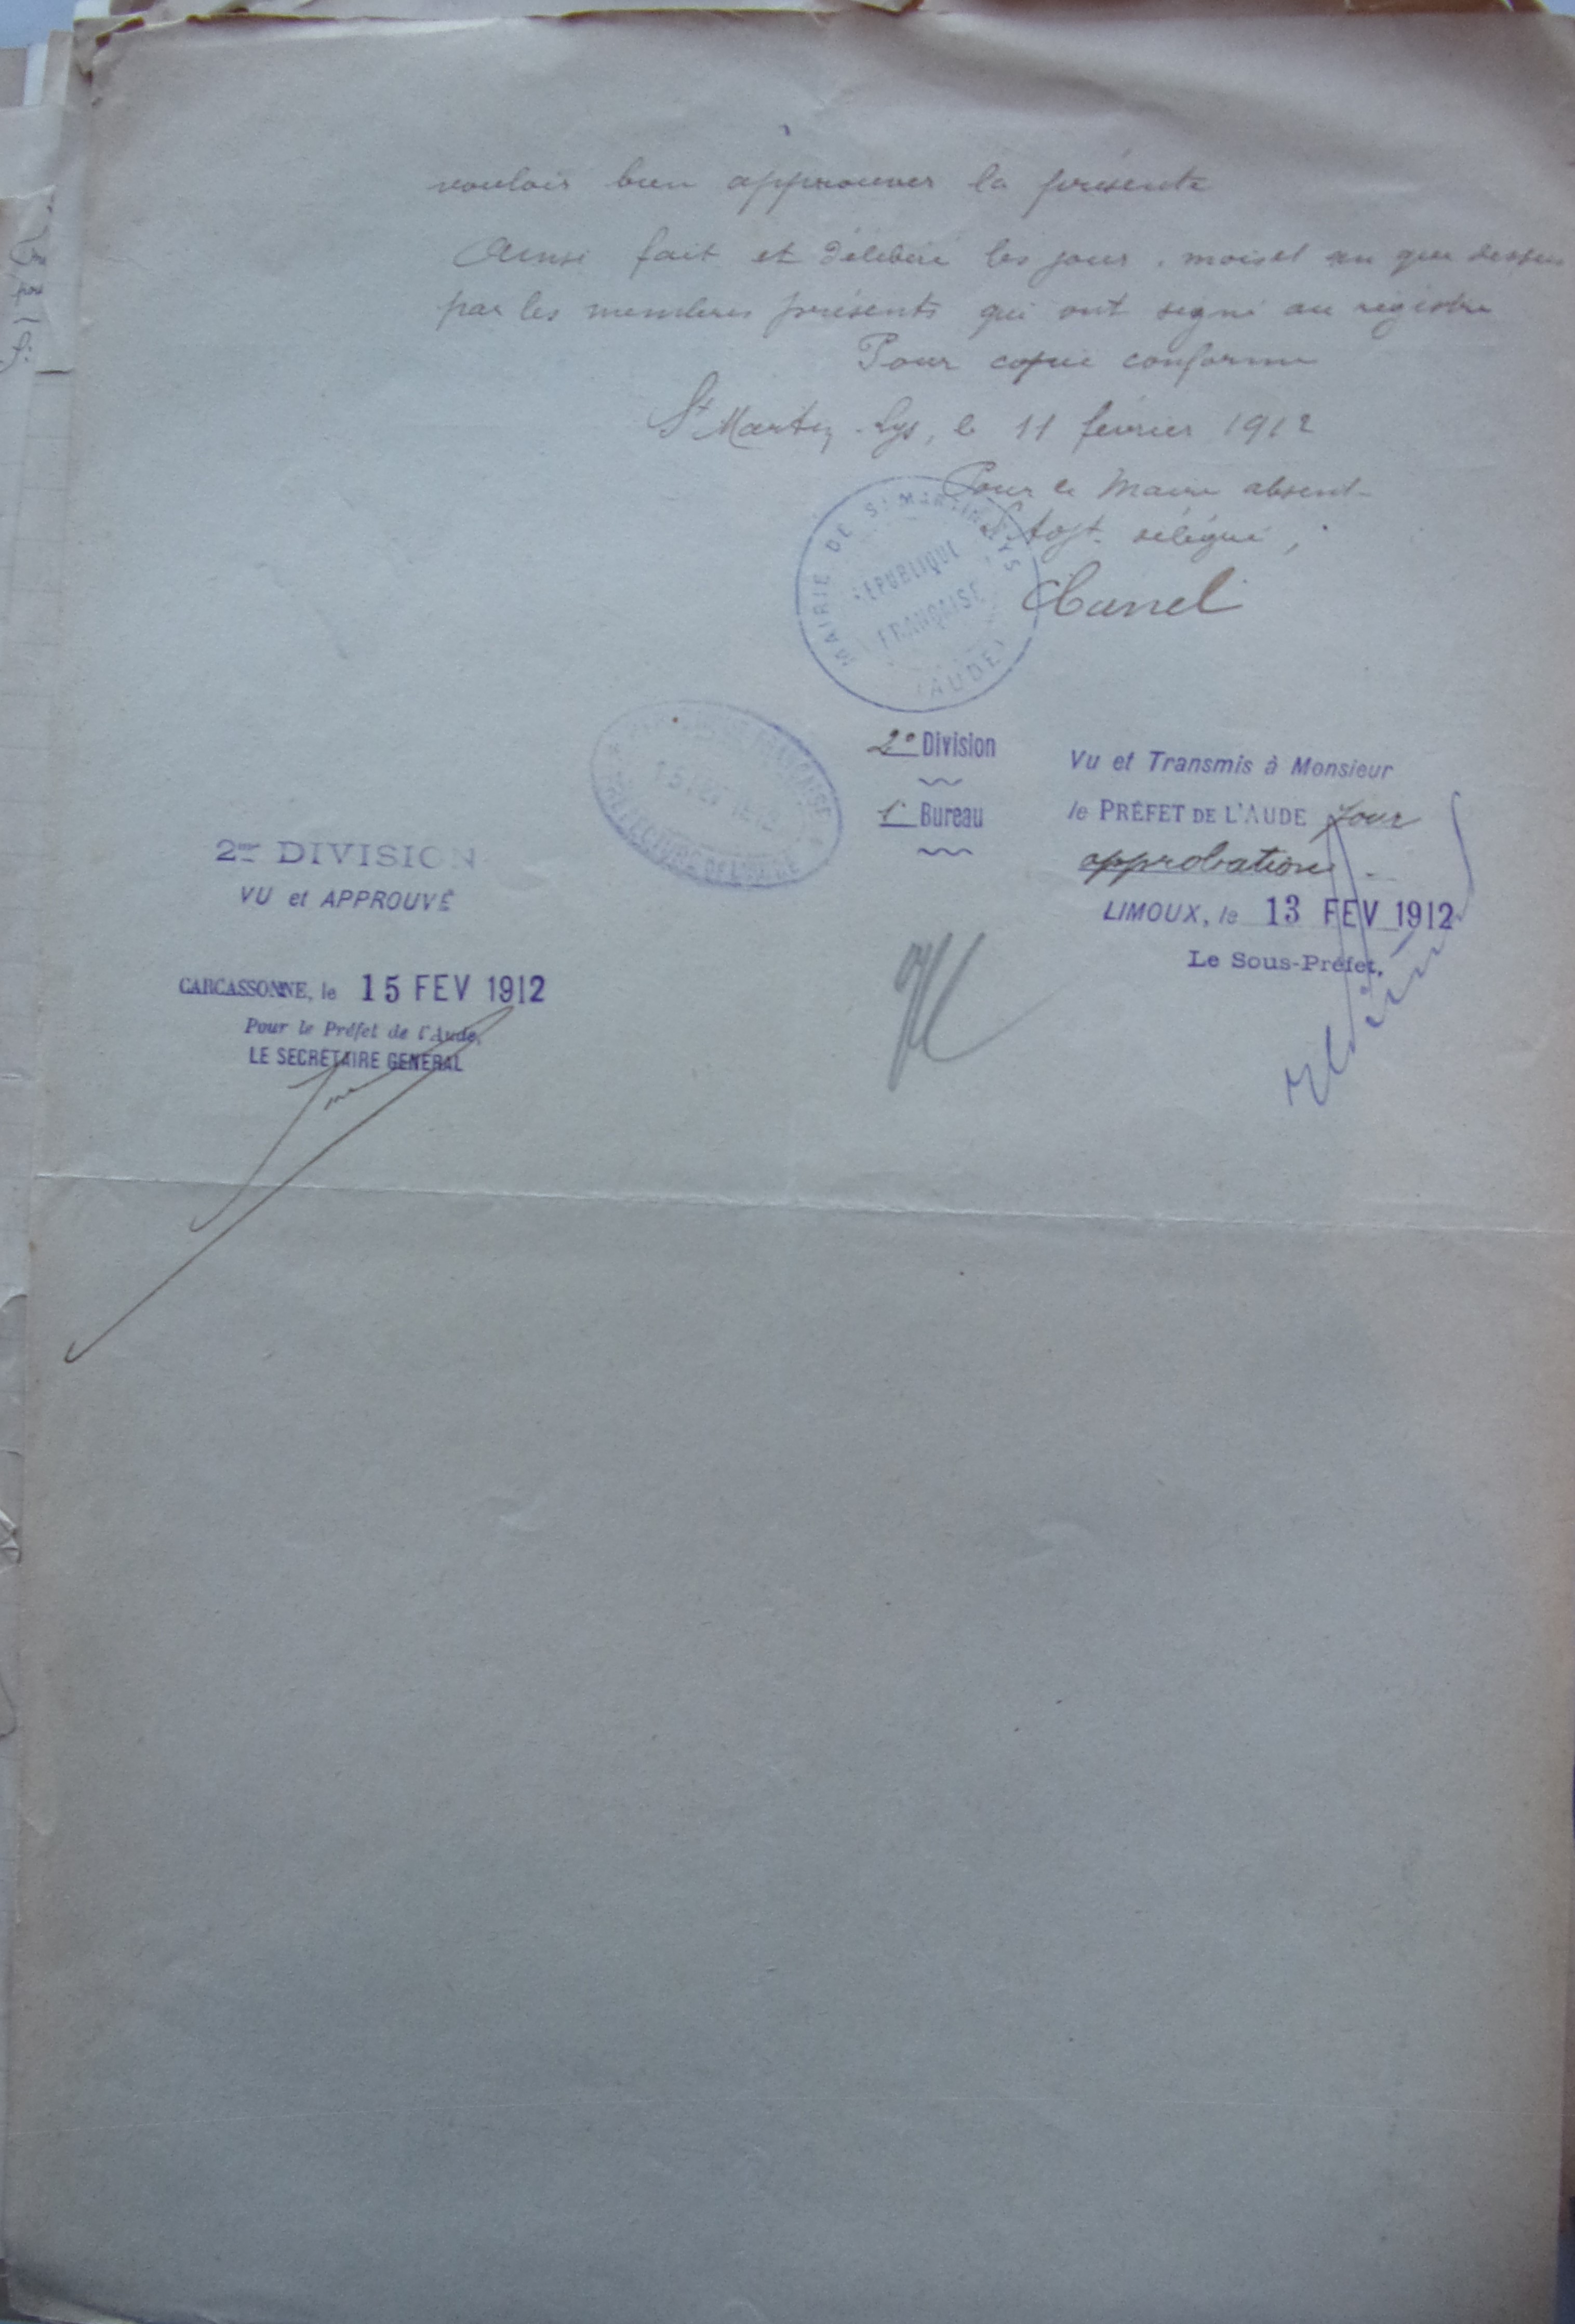 vouloir bien approuver la présente
Ainsi fait et délibéré les jour, mois et an que dessus
par les membres présents qui ont signé au registre
Pour copie conforme
St Martin-Lys, le 11 février 1912
Pour le Maire absent
délégué,
MAIRIE DE St MARTIN LYS
REPUBLIQUE
FRANÇAISE
(AUDE)
2e Division
1r Bureau
Vu et Transmis à Monsieur
le PRÉFET DE L'AUDE pour
approbation.
LIMOUX, le 13 FEV 1912
Le Sous-Préfet,
15 FEV 1912
PREFECTURE DE L'AUDE
2me DIVISION
VU et APPROUVÉ
CARCASSONNE, le 15 FEV 1912
Pour le Préfet de l'Aude,
LE SECRÉTAIRE GÉNÉRAL